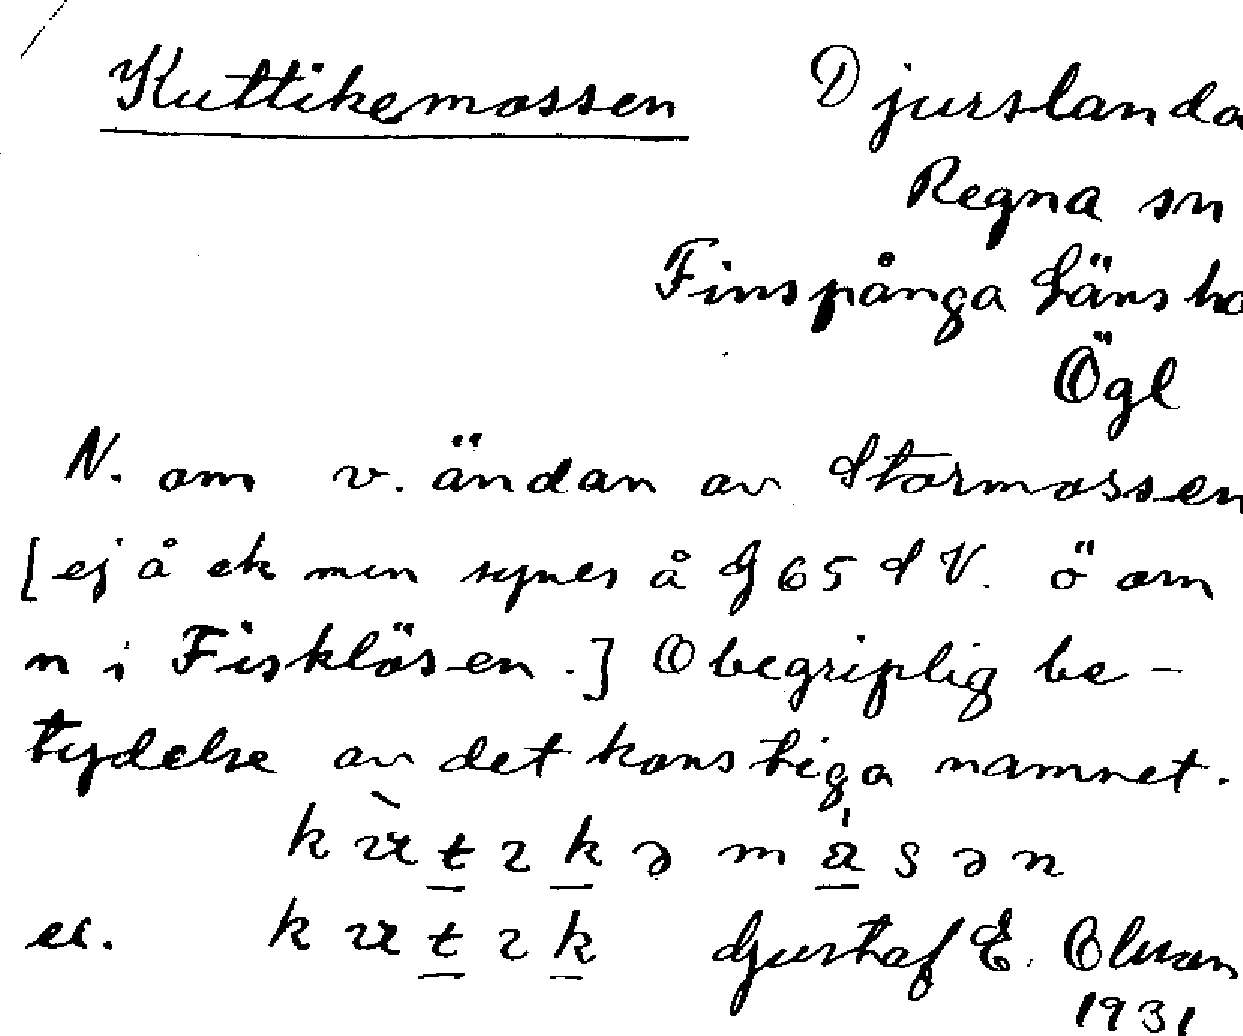 Kuttikemossen Djurslanda
Regna sn
Finspånga Länsho
Ögl
N. om v. ändan av Stormossen
[ej å ek men synes å G 65 S V. ö om
n i Fisklösen.] Obegriplig be-
tydelse av det konstiga namnet.
el. Gustaf E. Olsson
1931